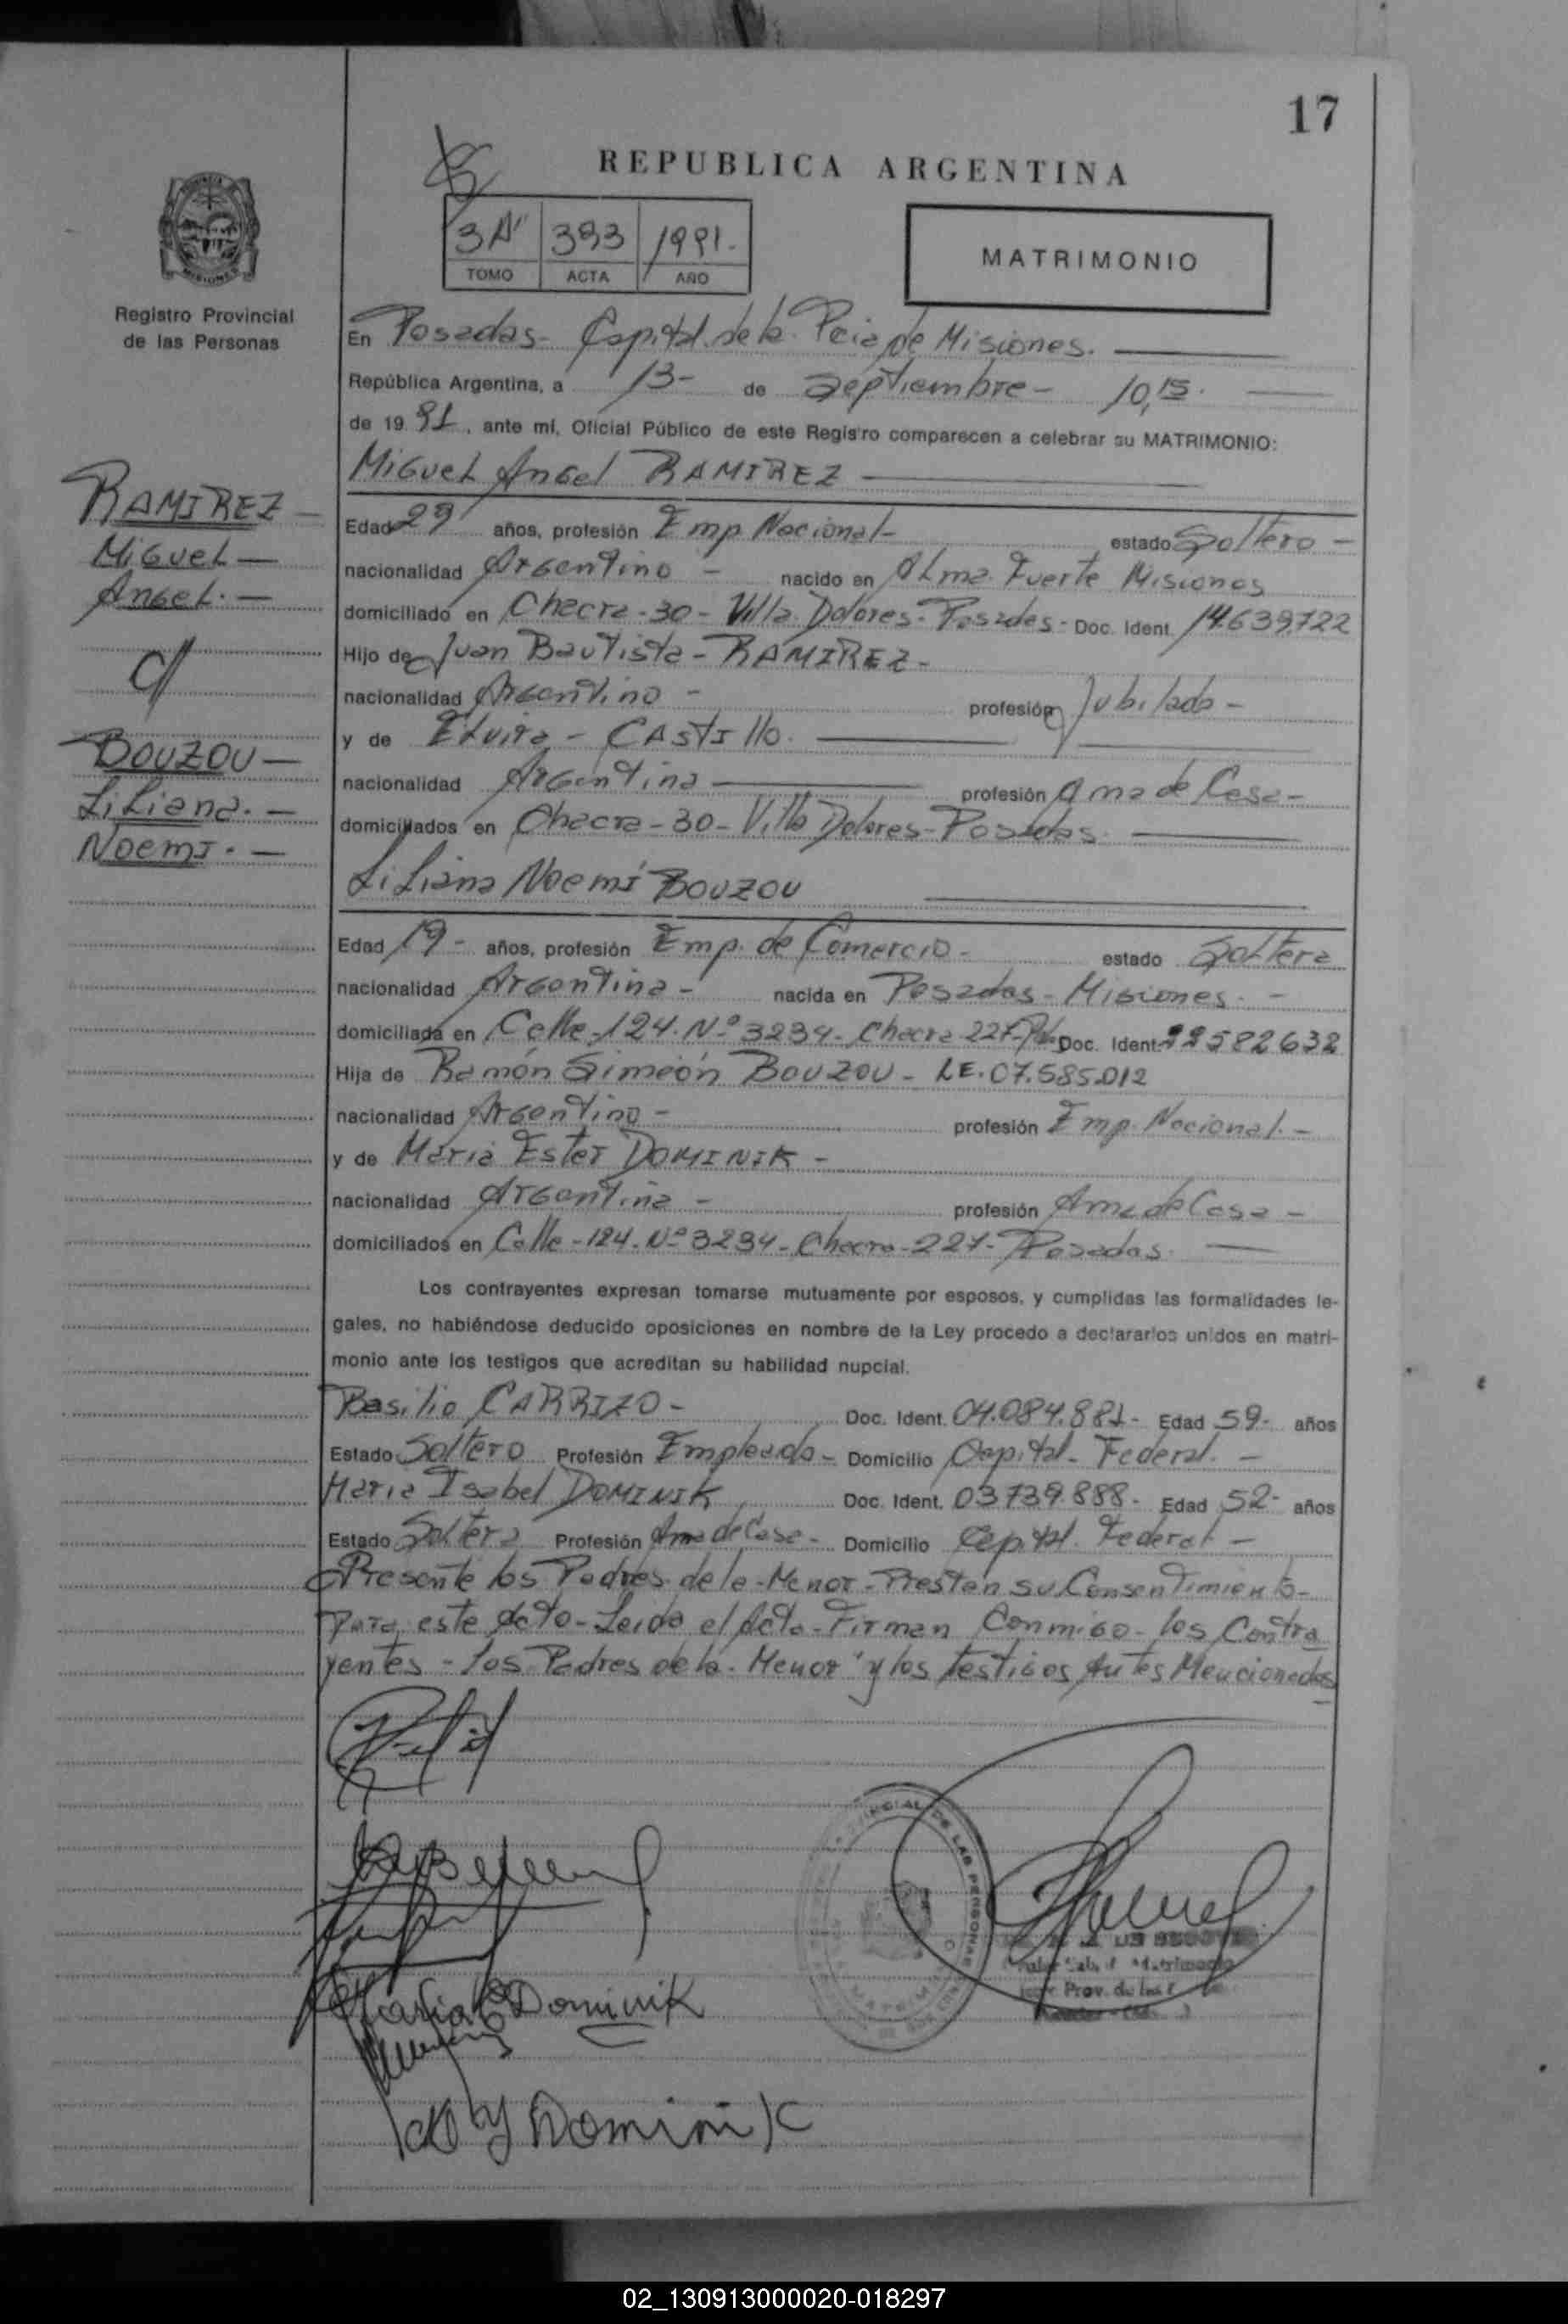 17
REPUBLICA ARGENTINA
3A' 393 1991.
TOMO ACTA AÑO
MATRIMONIO
Registro Provincial
de las Personas
En Posadas- Capital de la Pcia de Misiones.
República Argentina, a 13- de Septiembre- 10,15.
de 19 91, ante mí, Oficial Público de este Registro comparecen a celebrar su MATRIMONIO:
Miguel Angel RAMIREZ
RAMIREZ -
Miguel -
Angel. -
c/
BOUZOU -
Liliana. -
Noemi. -
Edad 29 años, profesión Emp. Nacional- estado Soltero -
nacionalidad Argentino - nacido en Alma Fuerte Misiones
domiciliado en Chacra-30- Villa Dolores-Posadas- Doc. Ident. 14.639.722
Hijo de Juan Bautista - RAMIREZ -
nacionalidad Argentino - profesión Jubilado -
y de Elvira - CASTIllo.
nacionalidad Argentina profesión Ama de Casa -
domiciliados en Chacra-30- Villa Dolores-Posadas.
Liliana Noemí BOUZOU
Edad 19- años, profesión Emp. de Comercio - estado Soltera
nacionalidad Argentina - nacida en Posadas - Misiones. -
domiciliada en Calle-124. Nº 3234- Chacra 227- Doc. Ident. 22582632
Hija de Ramón Simeón BOUZOU - LE. 07.585.012
nacionalidad Argentino - profesión Emp. Nacional. -
y de Maria Ester DOMINIK -
nacionalidad Argentina - profesión Ama de Casa -
domiciliados en Calle - 124. Nº 3234- Chacra-227- Posadas.
Los contrayentes expresan tomarse mutuamente por esposos, y cumplidas las formalidades le-
gales, no habiéndose deducido oposiciones en nombre de la Ley procedo a declararlos unidos en matri-
monio ante los testigos que acreditan su habilidad nupcial.
Basilio CARRIZO - Doc. Ident. 04.084.881- Edad 59- años
Estado Soltero Profesión Empleado - Domicilio Capital - Federal. -
Maria Isabel DOMINIK Doc. Ident. 03739.888- Edad 52- años
Estado Soltera Profesión Ama de Casa - Domicilio Capital. Federal -
Presente los Padres de la - Menor - Prestan su Consentimiento-
Para este Acto - Leida el Acta - Firman Conmigo - los Contra
yentes - los Padres de la - Menor y los testigos Antes Mencionados
Maria E Dominik
Dominik
02_130913000020-018297